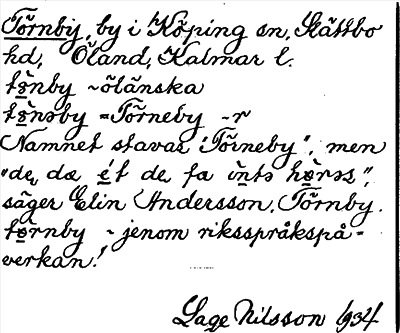 Törnby, by i Köping sn, Slättbo
hd, Öland, Kalmar l.
tö̀nby ~ öländska
tö̀nəby = Törneby ~r
Namnet stavas "Törneby", men
"de, dæ ét de fa ìntə hö̀rəs",
säger Elin Andersson, Törnby.
tö̀rnby ~ jenom riksspråkspå-
verkan!
Lage Nilsson 1934